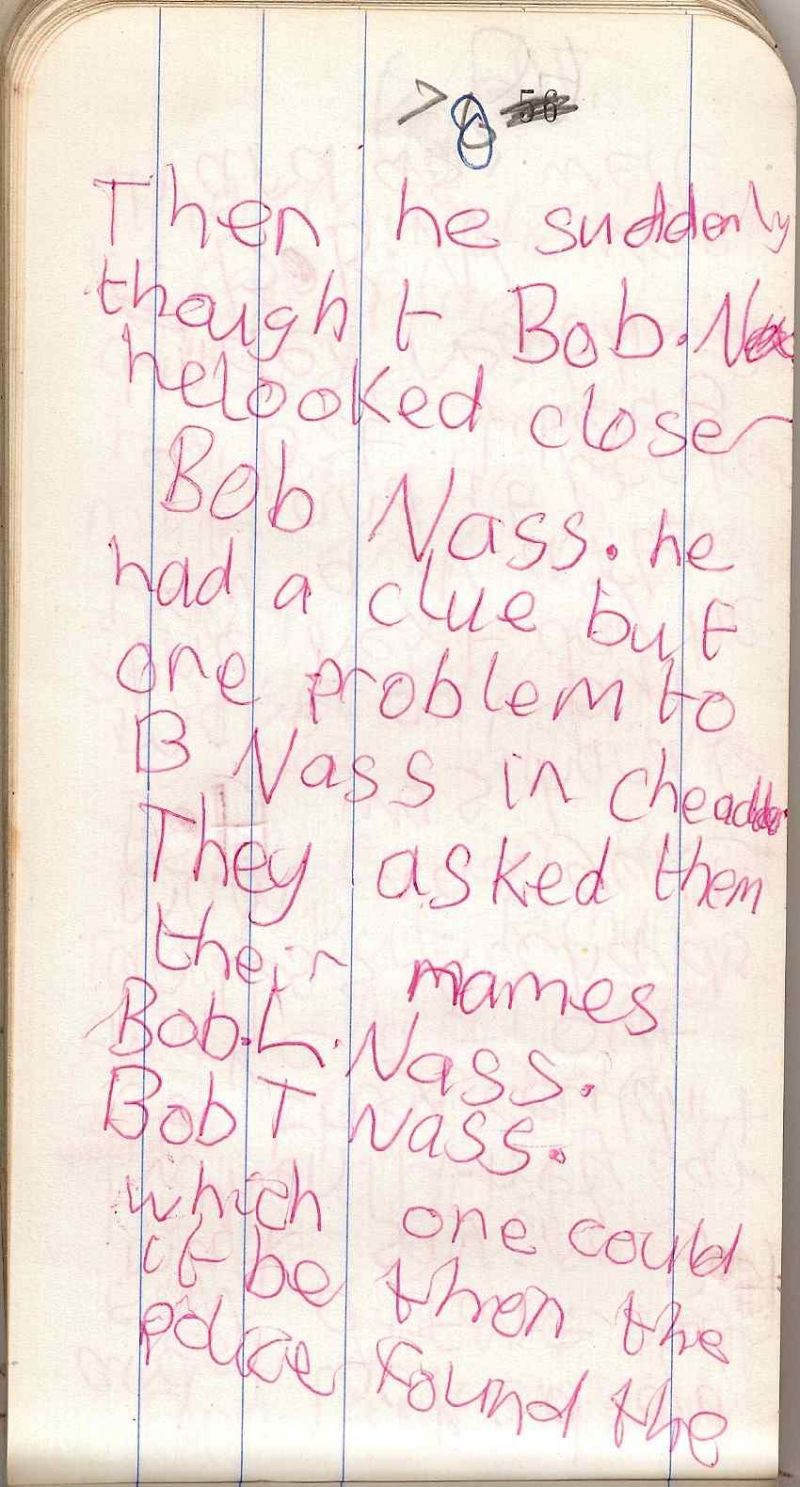 > 8 56
Then he suddenly
thought Bob. N
helooked closer
Bob Nass. he
had a clue but
one problem to
B Nass in chead
They asked them
their mames
Bob. L. Nass.
Bob T Nass.
which one could
it be then the
police found the